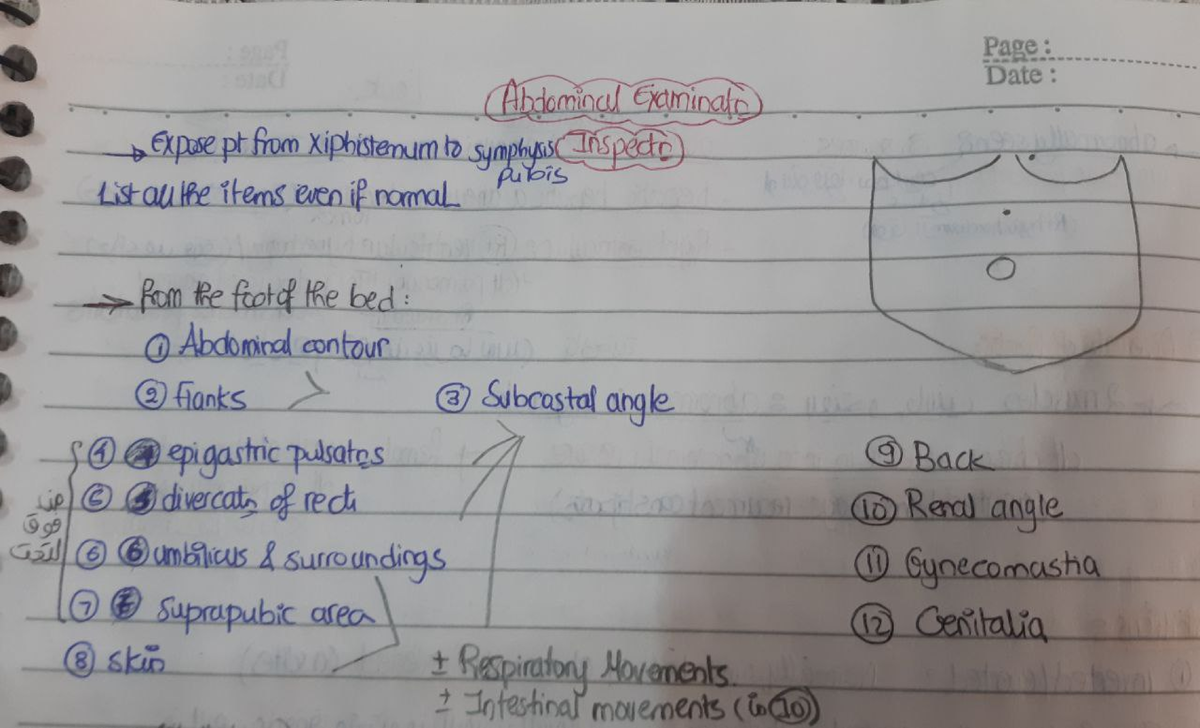 Page :
Date :
Abdominal Examinatn
→ Expose pt from Xiphisternum to symphysis pubis
Inspectn
List all the items even if normal
→ from the foot of the bed :
① Abdominal contour
② flanks
③ Subcostal angle
④ epigastric pulsatns
⑤ divercatn of recti
⑥ umbilicus & surroundings
⑦ suprapubic area
⑧ skin
من فوق لتحت
⑨ Back
⑩ Renal angle
⑪ Gynecomastia
⑫ Genitalia
± Respiratory Movements
± Intestinal movements (in IO)